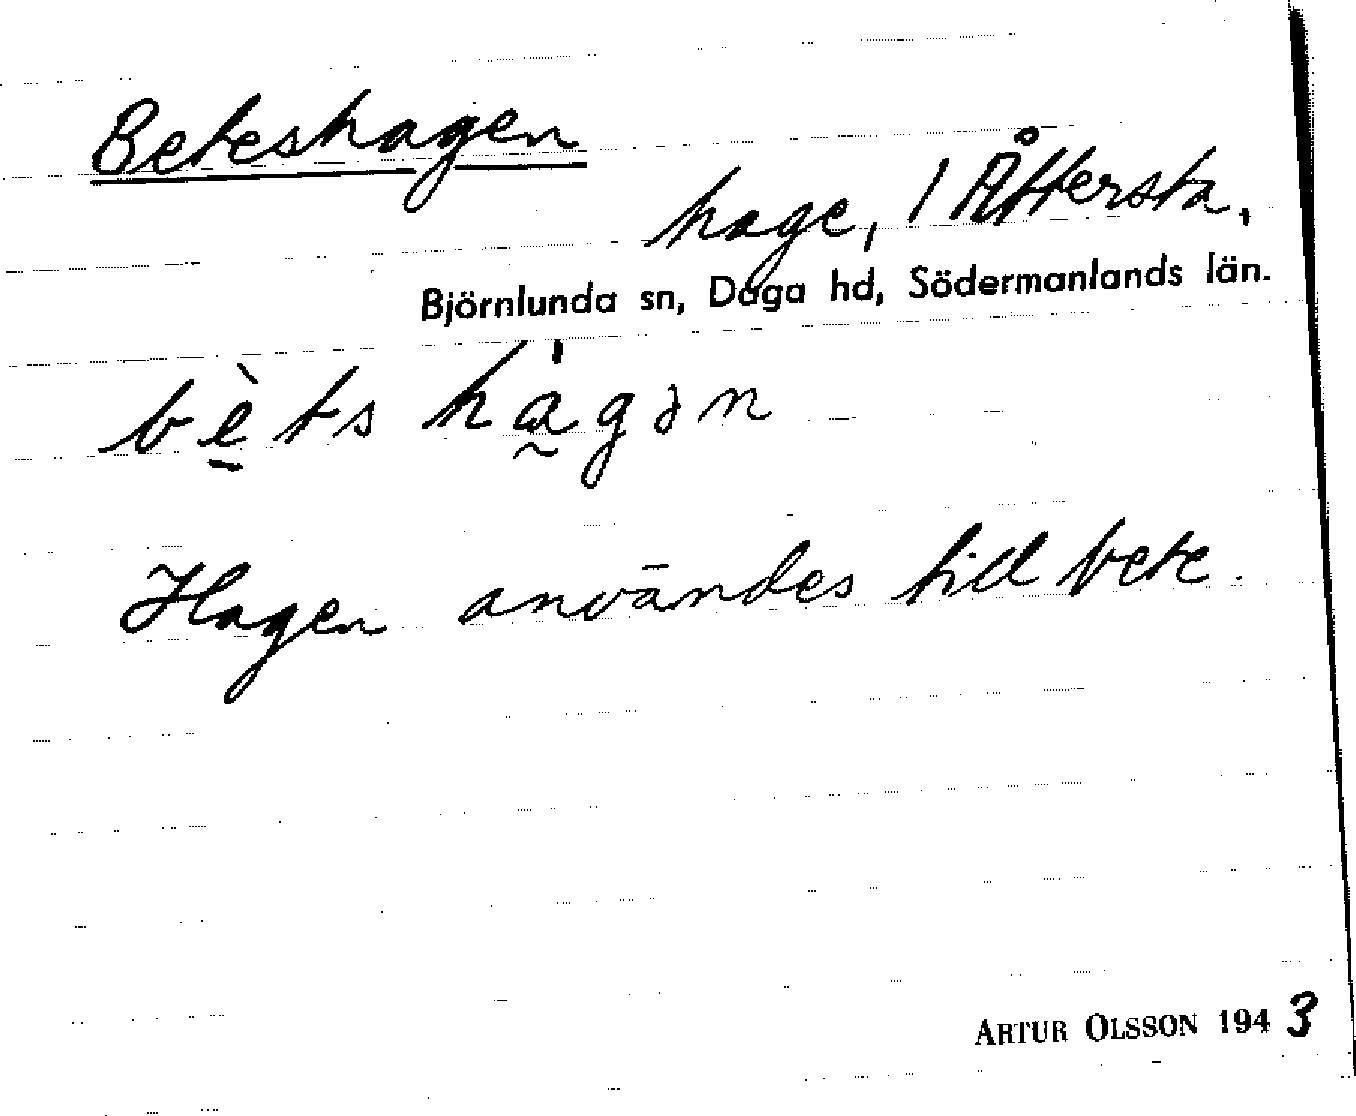 Beteshagen
hage, 1 Åttersta,
Björnlunda sn, Daga hd, Södermanlands län.
bè̱ts hå̰gən
Hagen användes till bete.
ARTUR OLSSON 1943